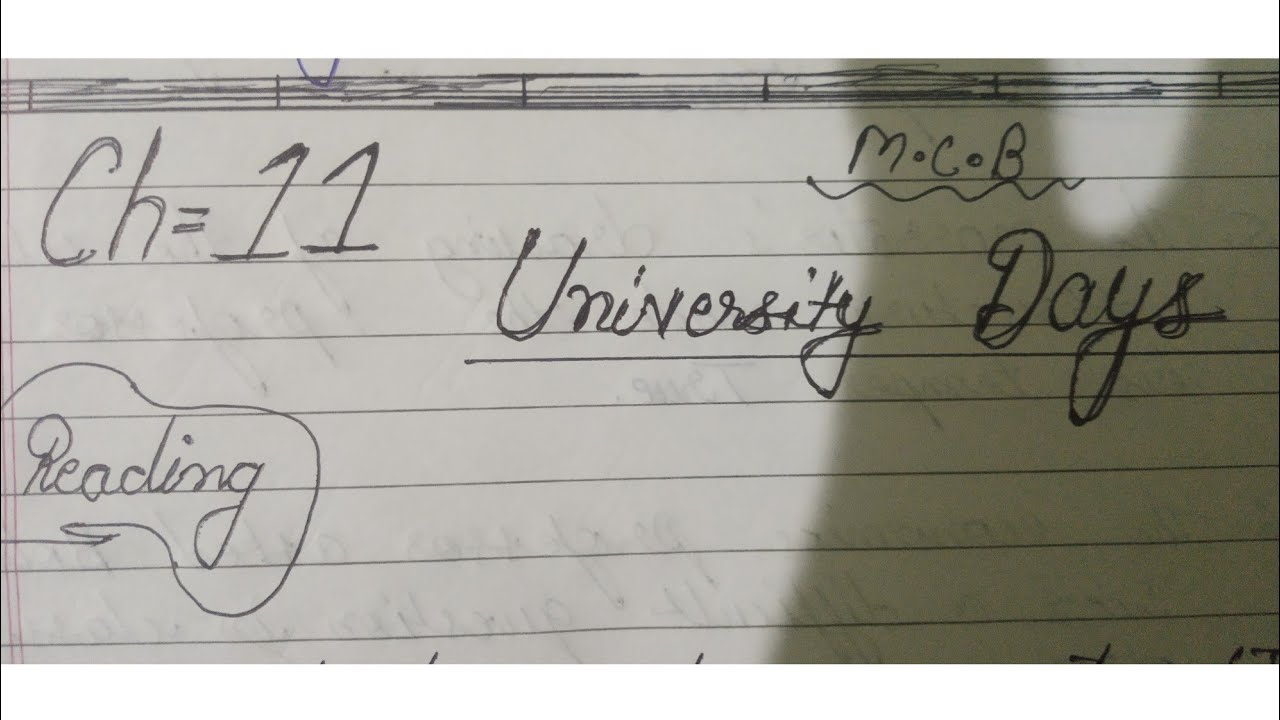 Ch=11
M.C.B
University Days
Reading